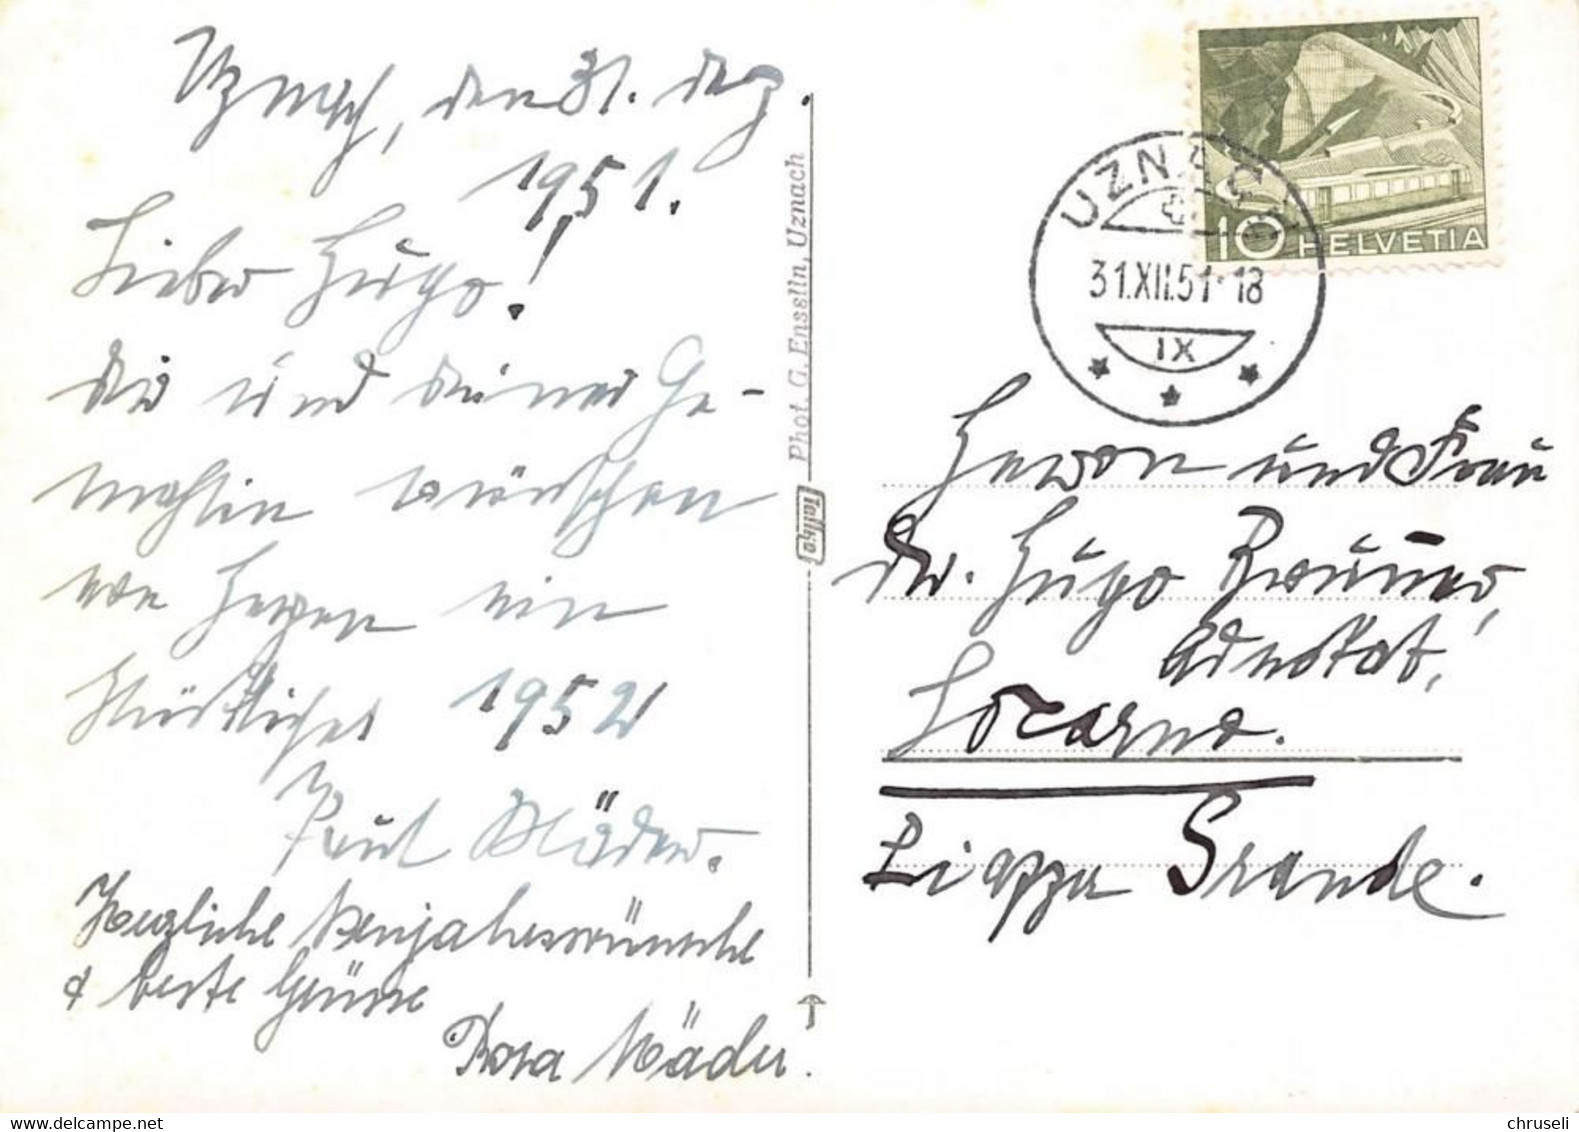 Uznach, den 31. Dez.
1951.
Lieber Hugo!
Dir und deiner Ge-
mahlin wünschen
von Herzen ein
Glückliches 1952
Paul Mäder.
Herzliche Neujahrswünsche
& beste Grüsse
Rosa Mäder.
Phot. G. Ensslin, Uznach
UZNACH
31.XII.51-18
IX
10 HELVETIA
Herrn und Frau
Dr. Hugo
Advokat,
Locarno.
Piazza Grande.
www.delcampe.net
chruseli